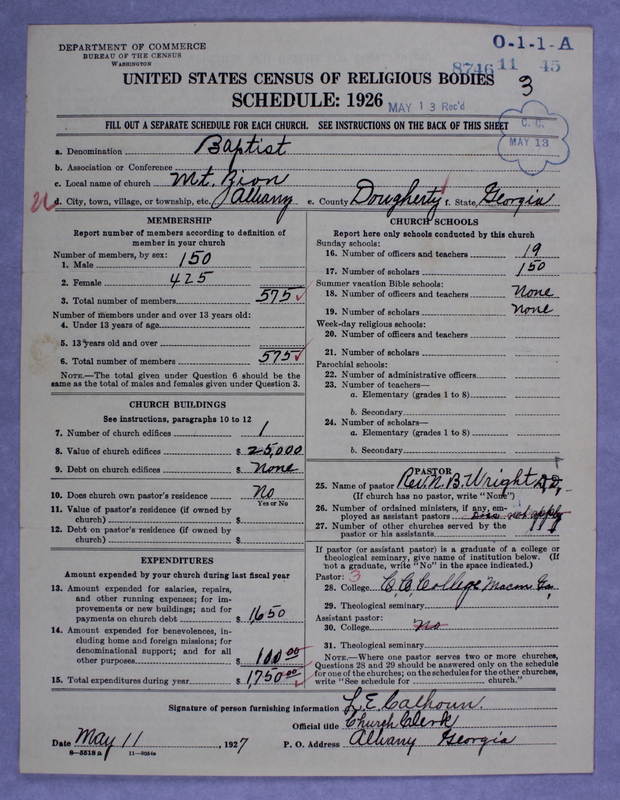 DEPARTMENT OF COMMERCE
BUREAU OF THE CENSUS
WASHINGTON
O-1-1-A
8746 11 45
3
UNITED STATES CENSUS OF RELIGIOUS BODIES
SCHEDULE: 1926
MAY 13 Rec'd
FILL OUT A SEPARATE SCHEDULE FOR EACH CHURCH. SEE INSTRUCTIONS ON THE BACK OF THIS SHEET
C. C.
MAY 13
a. Denomination Baptist
b. Association or Conference
c. Local name of church Mt. Zion
d. City, town, village, or township, etc. Albany e. County Dougherty f. State, Georgia
MEMBERSHIP
Report number of members according to definition of
member in your church
Number of members, by sex:
1. Male 150
2. Female 425
3. Total number of members 575
Number of members under and over 13 years old:
4. Under 13 years of age
5. 13 years old and over
6. Total number of members 575
NOTE.—The total given under Question 6 should be the
same as the total of males and females given under Question 3.
CHURCH BUILDINGS
See instructions, paragraphs 10 to 12
7. Number of church edifices 1
8. Value of church edifices $ 25,000
9. Debt on church edifices $ None
10. Does church own pastor's residence No
Yes or No
11. Value of pastor's residence (if owned by
church) $
12. Debt on pastor's residence (if owned by
church) $
EXPENDITURES
Amount expended by your church during last fiscal year
13. Amount expended for salaries, repairs,
and other running expenses; for im-
provements or new buildings; and for
payments on church debt $ 1,650
14. Amount expended for benevolences, in-
cluding home and foreign missions; for
denominational support; and for all
other purposes $ 100.00
15. Total expenditures during year $ 1,750.00
CHURCH SCHOOLS
Report here only schools conducted by this church
Sunday schools:
16. Number of officers and teachers 19
17. Number of scholars 150
Summer vacation Bible schools:
18. Number of officers and teachers None
19. Number of scholars None
Week-day religious schools:
20. Number of officers and teachers
21. Number of scholars
Parochial schools:
22. Number of administrative officers
23. Number of teachers—
a. Elementary (grades 1 to 8)
b. Secondary
24. Number of scholars—
a. Elementary (grades 1 to 8)
b. Secondary
PASTOR
25. Name of pastor Rev. N. B. Wright D.D.,
(If church has no pastor, write "None")
26. Number of ordained ministers, if any, em-
ployed as assistant pastors Does not apply
27. Number of other churches served by the
pastor or his assistants
If pastor (or assistant pastor) is a graduate of a college or
theological seminary, give name of institution below. (If
not a graduate, write "No" in the space indicated.)
Pastor: 3
28. College C. C. College Macon Ga,
29. Theological seminary
Assistant pastor:
30. College No
31. Theological seminary
NOTE.—Where one pastor serves two or more churches,
Questions 28 and 29 should be answered only on the schedule
for one of the churches; on the schedules for the other churches,
write "See schedule for church."
Signature of person furnishing information L. E. Calhoun.
Official title Church Clerk
Date May 11, 1927 P. O. Address Albany Georgia
8-5518 a 11-9054a